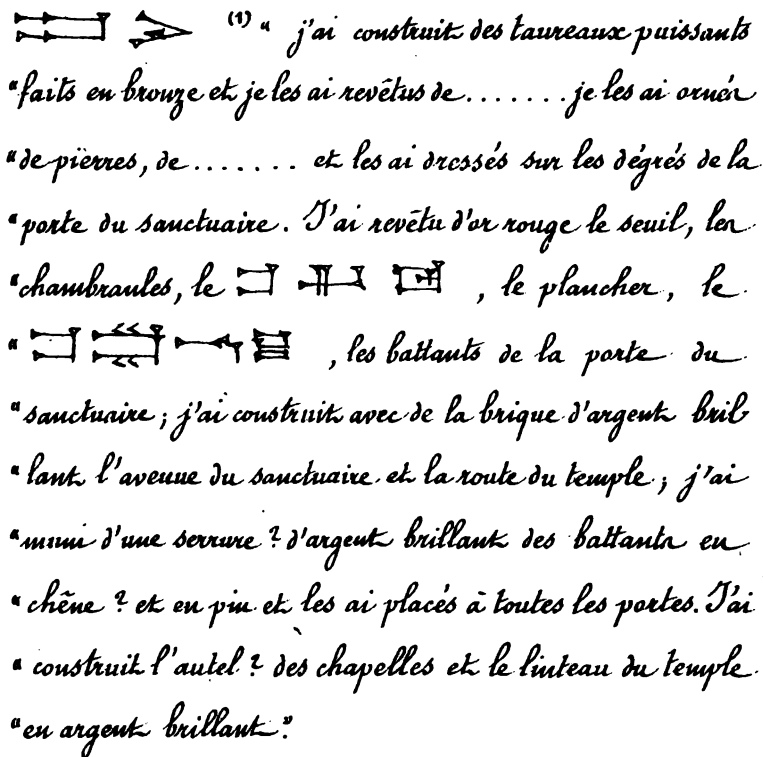 (1) " j'ai construit des taureaux puissants
"faits en bronze et je les ai revêtus de ........ je les ai ornés
"de pierres, de ....... et les ai dressés sur les dégrés de la
"porte du sanctuaire. J'ai revêtu d'or rouge le seuil, les
"chambranles, le , le plancher, le
" , les battants de la porte du
"sanctuaire; j'ai construit avec de la brique d'argent bril
"lant l'avenue du sanctuaire et la route du temple; j'ai
"muni d'une serrure ? d'argent brillant des battants en
"chêne ? et en pin et les ai placés à toutes les portes. J'ai
"construit l'autel ? des chapelles et le linteau du temple
"en argent brillant."